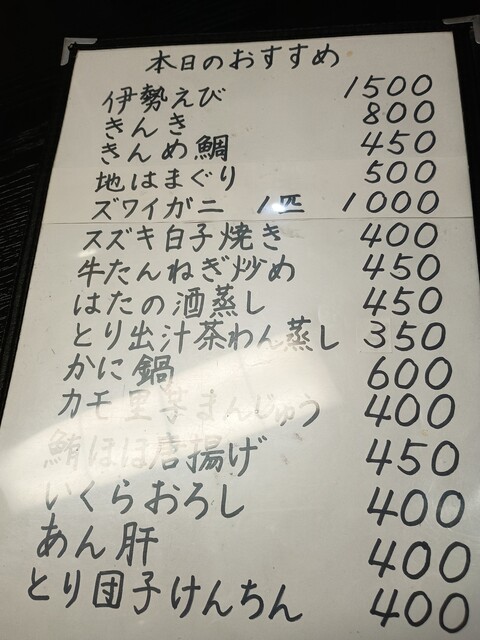 本日のおすすめ
伊勢えび 1500
きんき 800
きんめ鯛 450
地はまぐり 500
ズワイガニ 1匹 1000
スズキ白子焼き 400
牛たんねぎ炒め 450
はたの酒蒸し 450
とり出汁茶わん蒸し 350
かに鍋 600
カモ里芋まんじゅう 400
鮪ほほ唐揚げ 450
いくらおろし 400
あん肝 400
とり団子けんちん 400